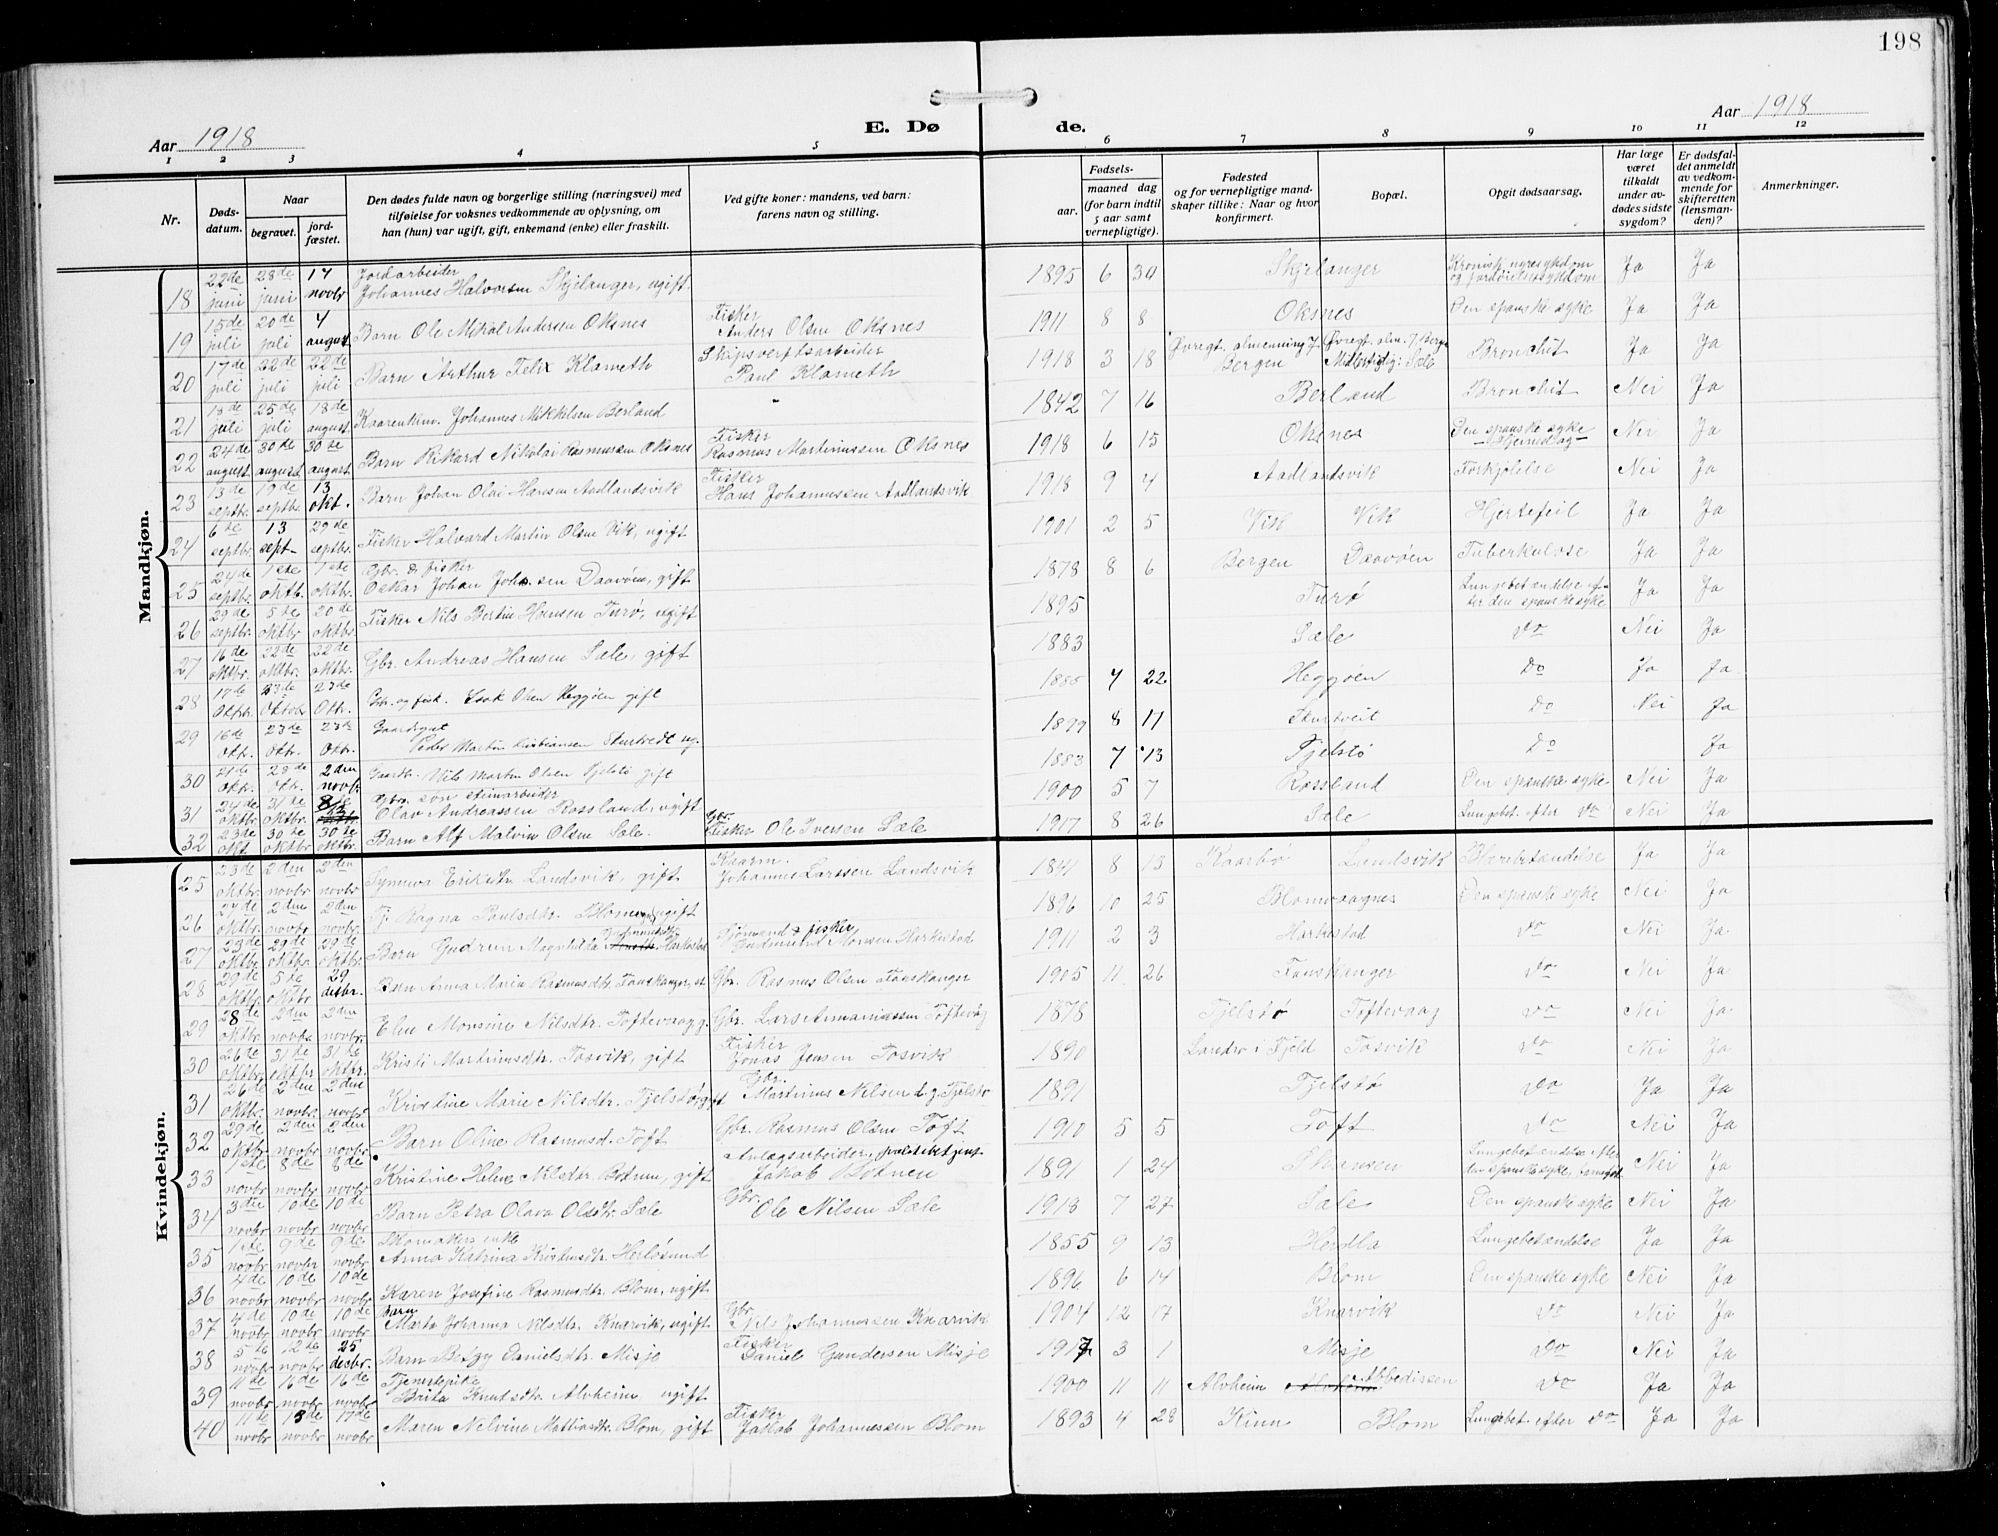 198
Aar 1918
E. Dø
de.
Aar 1918
1 2 3 4 5 6 7 8 9 10 11 12
Nr.
Døds-
datum.
Naar
begravet.
jord-
fæstet.
Den dødes fulde navn og borgerlige stilling (næringsvei) med
tilføielse for voksnes vedkommende av oplysning, om
han (hun) var ugift, gift, enkemand (enke) eller fraskilt.
Ved gifte koner: mandens, ved barn:
farens navn og stilling.
Fødsels-
aar.
maaned dag
(for barn indtil
5 aar samt
vernepligtige).
Fødested
og for vernepligtige mand-
skaper tillike: Naar og hvor
konfirmert.
Bopæl.
Opgit dødsaarsag.
Har læge
været
tilkaldt
under av-
dødes sidste
sygdom?
Er dødsfal-
det anmeldt
av vedkom-
mende for
skifteretten
(lensman-
den)?
Anmerkninger.
Mandkjøn.
18 22de juni 28de juni 17 novbr Jordarbeider Johannes Halvorsen Skjelanger, ugift. 1895 6 30 Skjelanger Kronisk nyresykdom og Ja Ja
19 15de juli 20de juli 4 august Barn Ole Mikal Andersen Oksnes Fisker Anders Olsen Oksnes 1911 8 8 Oksnes Den spanske syke Ja Ja
20 17de juli 22de juli 22de juli Barn Arthur Felix Klameth Skipsverftsarbeider Paul Klameth 1918 3 18 Øvregt. almenning 7 Bergen Øvregt. alm. 7 Berg Midlertidig: Sæle Bronchit Ja Ja
21 18de juli 25de juli 18de august Kaarenkm. Johannes Mikkelsen Berland 1842 7 16 Berland Bronchit Nei Ja
22 24de august 30de august 30te august Barn Rikard Nikolai Rasmussen Oksnes Fisker Rasmus Martinussen Oksnes 1918 6 15 Oksnes Den spanske syke Nei Ja
23 13de septbr. 19de septbr. 13 okt. Barn Johan Olai Hansen Aadlandsvik Fisker Hans Johannessen Aadlandsvik 1918 9 4 Aadlandsvik Forkjølelse Nei Ja
24 6te septbr. 13 sept- 29de septbr. Fisker Halvard Martin Olsen Vik, ugift 1901 2 5 Vik Vik Hjertefeil Ja Ja
25 24de septbr. 1ste oktb. 1ste oktbr. Gbr. & fisker Oskar Johan Johs.sen Daavøen, gift 1878 8 6 Bergen Daavøen Tuberkulose Ja Ja
26 29de septbr. 5te oktbr 20de oktbr. Fisker Nils Bertin Hansen Turø, ugift 1895 Turø Lungebetændelse ef- ter den spanske syke Ja Ja
27 16de oktbr. 22de oktbr. 22de oktbr. Gbr. Andreas Hansen Sæle, gift 1883 Sæle do Nei Ja
28 17de Oktbr. 23de Oktobr 23de Oktr. Gbr. og fisk. Isak Olsen Heggøen gift 1885 4 22 Heggøen Do Ja Ja
29 16de Oktr. 23de Oktr. 23de Oktr. Gaardsgut Peder Martin Kristiansen Sturtvedt ug. 1899 8 17 Sturtveit Do Nei Ja
30 21de Oktr. 28de Oktr. 2den novbr. Gaardbr. Nils Martin Olsen Fjelstø gift 1883 7 13 Fjelstø Do Ja
31 24de oktbr 31te oktbr. 8de Gbr. søn stenarbeider Olav Andreassen Rossland, ugift 1900 5 7 Rossland Den spanske syke Nei Ja
32 23de okt. 30te oktbr 30te oktbr. Barn Alf Malvin Olsen Sæle. Gbr. Fisker Ole Iversen Sæle 1917 8 26 Sæle Lungebet. efter do Nei Ja
Kvindekjøn.
25 23de oktbr. 2den novbr 2den novbr Synneva Eriksdtr. Landsvik, gift Kaarm. Johannes Larssen Landsvik 1841 8 13 Kaarbø Landsvik Blærebetændelse Ja Ja
26 27de oktbr. 2den novbr. 2den novbr. Tj. Ragna Paulsdtr. Blomv. ugift 1896 10 25 Blomvaagnes Den spanske syke Nei Ja
27 23de oktbr. 29de oktbr. 29de oktbr. Barn Gudrun Magnhilda Gudmundsdtr. Harkestad Fjømand & fisker Gudmund Monsen Harkestad 1911 2 3 Harkestad do Nei Ja
28 29de oktbr. 5te oktbr 29 desbr. Barn Anna Maria Rasmusdtr. Fonskanger, st Gbr. Rasmus Olsen Fonskanger 1905 11 26 Fonskanger do Nei Ja
29 28de oktbr. 2den novbr. 2den novbr. Elen Monsine Nilsdtr. Toftevaag g. Gbr. Lars Annaniassen Toftevåg 1878 Fjelstø Toftevaag do Nei Ja
30 26de oktbr. 31te oktbr 31te oktbr. Kristi Martinusdtr. Tosvik, gift Fisker Jonas Jensen Tosvik 1890 Landrø i Fjeld Tosvik do Nei Ja
31 26de oktbr. 2den novbr. 2den novbr. Kristine Marie Nilsdtr. Fjelstø, gift Gbr. Martinus Nilsen d.y. Fjelstø 1891 Fjelstø do Ja Ja
32 29de oktbr. 2den novbr. 2den novbr. Barn Oline Rasmusd. Toft Gbr. Rasmus Olsen Toft 1910 5 5 Toft do Nei Ja
33 1ste novbr. 8de novbr. 8de novbr. Kristine Helene Nilsdtr. Botnen, gift Anlægsarbeider, Jakob Botnen 1891 1 24 Lungebetændelse efter den spanske syke, Nei Ja
34 3die novbr 10de novbr 10de novbr Barn Petra Olava Olsdtr. Sæle Gbr. Ole Nilsen Sæle 1913 7 27 Sæle Den spanske syke Nei Ja
35 1ste novbr. 9de novbr 9de novbr Skomakers enke Anna Katrina Kristensdtr. Herløsund 1855 9 13 Herdla Lungebetændelse Ja Ja
36 4de novbr 10de novbr 10de novbr Karen Josefine Rasmusdtr. Blom, ugift 1896 6 14 Blom Den spanske syke Nei Ja
37 4de novbr. 10de novbr. 10de novbr. Barn Marta Johanna Nilsdtr. Knarvik, ugift Gbr. Nils Johannessen Knarvik 1904 12 17 Knarvik do Nei Ja
38 5te novbr. 12te novbr 25 desbr. Barn Betzy Danielsdtr. Misje Fisker Daniel Gundersen Misje 1917 3 1 Misje Do Nei Ja
39 11de novbr. 16de novbr. 16de novbr. Tjenestepike Brita Knutsdtr. Alvheim ugift 1900 11 11 Alvheim Abbedissen do Ja Ja
40 11te novbr 13de novbr. 17de novbr. Maren Nelvine Mattiasdtr. Blom, gift Fisker Jakob Johannessen Blom 1893 4 28 Kinn Blom Lungebet. efter do Ja Ja